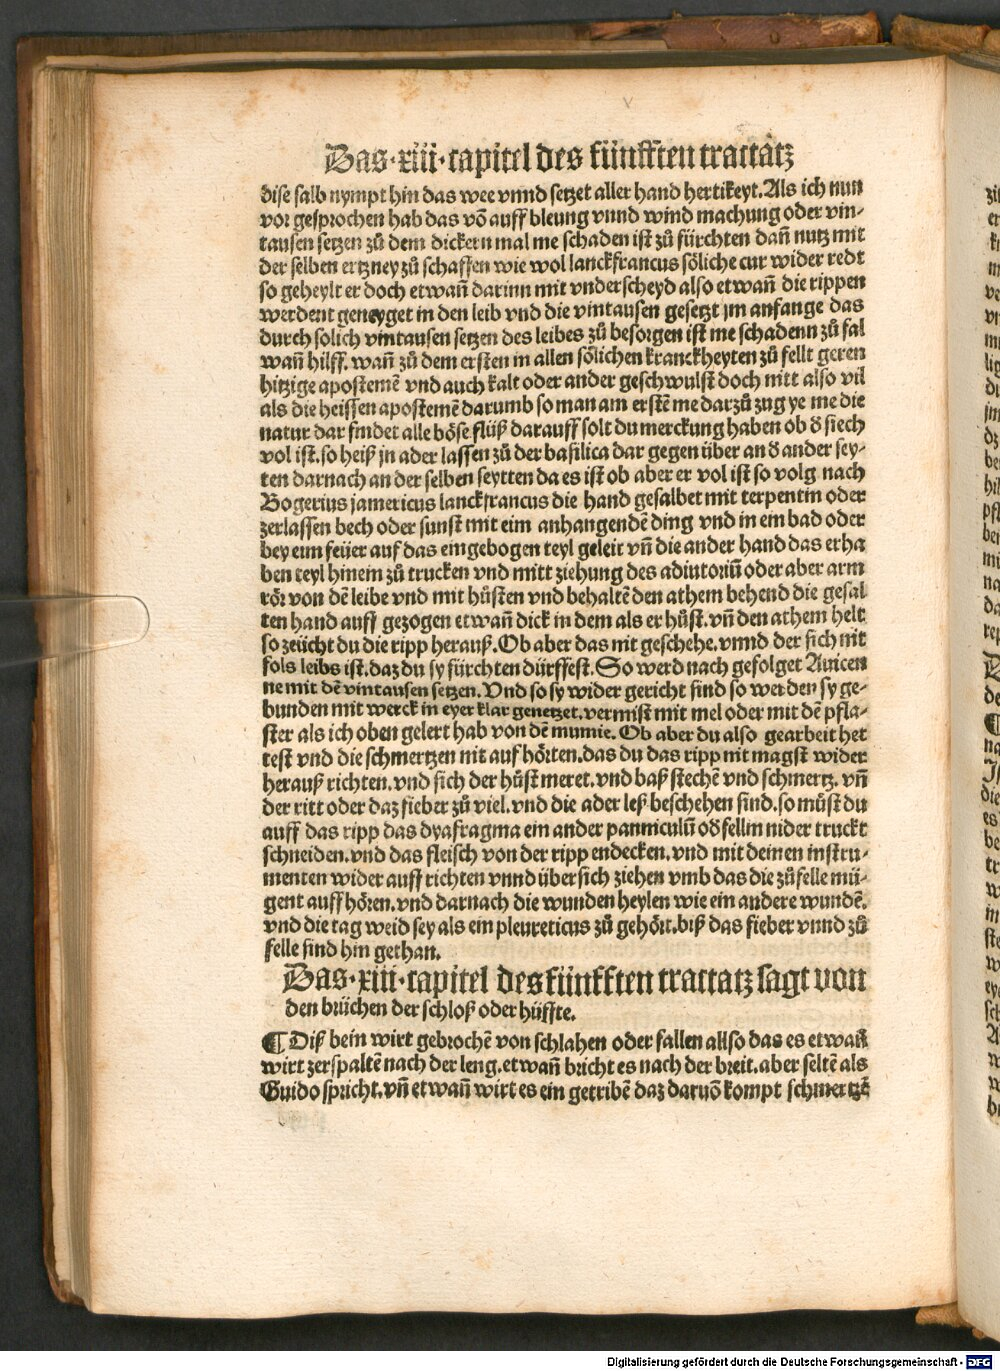 Das·xiii·capitel des fünfften tractatz
dise salb nympt hin das wee vnnd setzet aller hand hertikeyt. Als ich nun
vor gesprochen hab das vō auff bleung vnnd wind machung oder vin-
tausen setzen zů dem dickern mal me schaden ist zů fürchten dañ nutz mit
der selben ertzney zů schaffen wie wol lanckfrancus söliche cur wider redt
so geheylt er doch etwañ darinn mit vnderscheyd also etwañ die rippen
werdent geneyget in den leib vnd die vintausen gesetzt jm anfange das
durch solich vintausen setzen des leibes zů besorgen ist me schadenn zů fal
wañ hilff. wañ zů dem ersten in allen sölichen kranckheyten zů fellt geren
hitzige apostemē vnd auch kalt oder ander geschwulst doch nitt also vil
als die heissen apostemē darumb so man am erstē me darzů zug ye me die
natur dar findet alle böse flüß darauff solt du merckung haben ob ð siech
vol ist. so heiß jn ader lassen zů der basilica dar gegen über an ð ander sey-
ten darnach an der selben seytten da es ist ob aber er vol ist so volg nach
Rogerius jamericus lanckfrancus die hand gesalbet mit terpentin oder
zerlassen bech oder sunst mit eim anhangendē ding vnd in ein bad oder
bey eim feüer auf das eingebogen teyl geleit vñ die ander hand das erha
ben teyl hinein zů trucken vnd mitt ziehung des adiutoriū oder aber arm
rör von dē leibe vnd mit hůsten vnd behaltē den athem behend die gesal
ten hand auff gezogen etwañ dick in dem als er hůst. vñ den athem helt
so zeücht du die ripp herauß. Ob aber das nit geschehe. vnnd der sich nit
fols leibs ist. daz du sy fürchten dürffest. So werd nach gefolget Auicen
ne mit dē vintausen setzen. Vnd so sy wider gericht sind so werden sy ge-
bunden mit werck in eyer klar genetzet. vermist mit mel oder mit dē pfla-
ster als ich oben gelert hab von dē mumie. Ob aber du also gearbeit het
test vnd die schmertzen nit auf hörten. das du das ripp nit magst wider
herauß richten. vnd sich der hůst meret. vnd baß stechē vnd schmertz. vñ
der ritt oder daz fieber zů viel. vnd die ader leß beschehen sind. so můst du
auff das ripp das dyafragma ein ander panniculū oð fellin nider truckt
schneiden. vnd das fleisch von der ripp endecken. vnd mit deinen instru-
menten wider auff richten vnnd über sich ziehen vmb das die zůfelle mü-
gent auff hören. vnd darnach die wunden heylen wie ein andere wundē.
vnd die tag weid sey als ein pleureticus zů gehört. biß das fieber vnnd zů
felle sind hin gethan.
Das·xiii·capitel des fünfften tractatz sagt von
den brüchen der schloß oder hüffte.
¶ Diß bein wirt gebrochē von schlahen oder fallen allso das es etwañ
wirt zerspaltē nach der leng. etwañ bricht es nach der breit. aber seltē als
Guido spricht. vñ etwañ wirt es ein getribē daz daruō kompt schmertzē
Digitalisierung gefördert durch die Deutsche Forschungsgemeinschaft - DFG